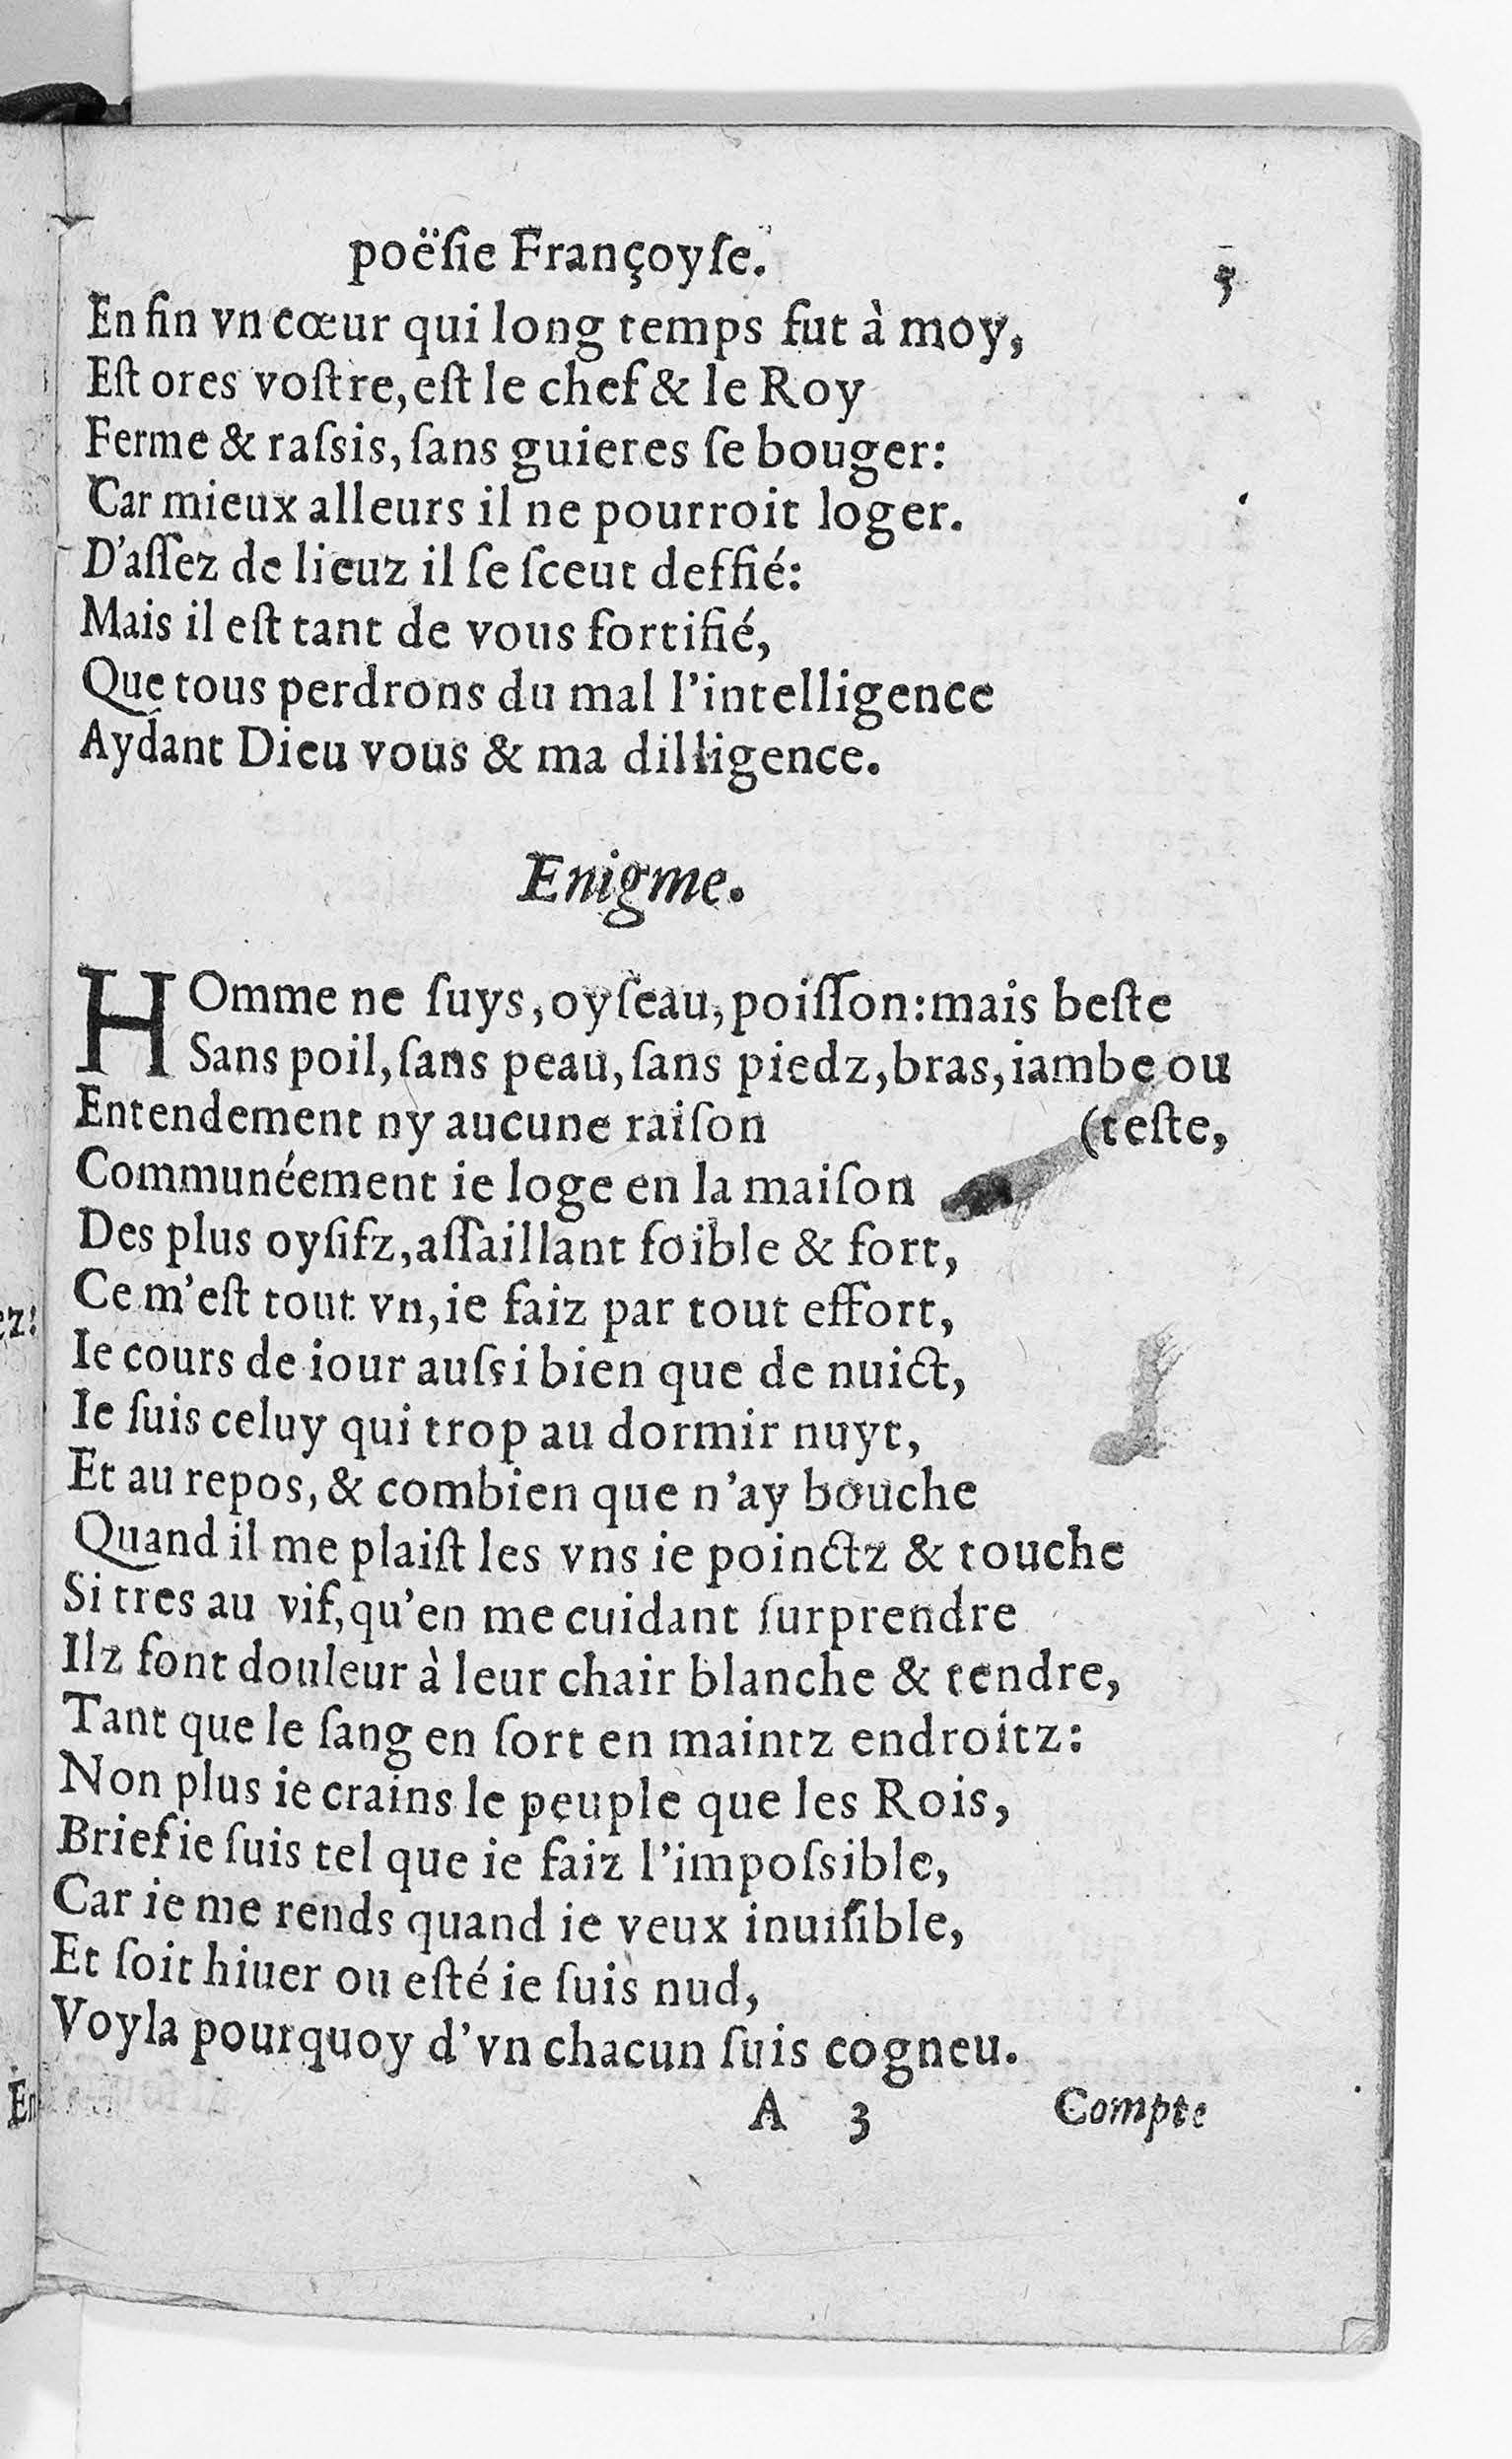 poëſie Françoyſe.
En fin vn cœur qui long temps fut à moy,
Eſt ores voſtre, eſt le chef & le Roy
Ferme & raſsis, ſans guieres ſe bouger:
Car mieux alleurs il ne pourroit loger.
D'aſſez de lieuz il ſe ſceut deffié:
Mais il eſt tant de vous fortifié,
Que tous perdrons du mal l'intelligence
Aydant Dieu vous & ma dilligence.
Enigme.
HOmme ne ſuys, oyſeau, poiſſon: mais beſte
Sans poil, ſans peau, ſans piedz, bras, iambe ou
Entendement ny aucune raiſon (teſte,
Communéement ie loge en la maiſon
Des plus oyſifz, aſſaillant foible & fort,
Ce m'eſt tout vn, ie faiz par tout effort,
Ie cours de iour auſsi bien que de nuict,
Ie ſuis celuy qui trop au dormir nuyt,
Et au repos, & combien que n'ay bouche
Quand il me plaiſt les vns ie poinctz & touche
Si tres au vif, qu'en me cuidant ſurprendre
Ilz font douleur à leur chair blanche & tendre,
Tant que le ſang en ſort en maintz endroitz:
Non plus ie crains le peuple que les Rois,
Brief ie ſuis tel que ie faiz l'impoſsible,
Car ie me rends quand ie veux inuiſible,
Et ſoit hiuer ou eſté ie ſuis nud,
Voyla pourquoy d'vn chacun ſuis cogneu.
A 3 Compte